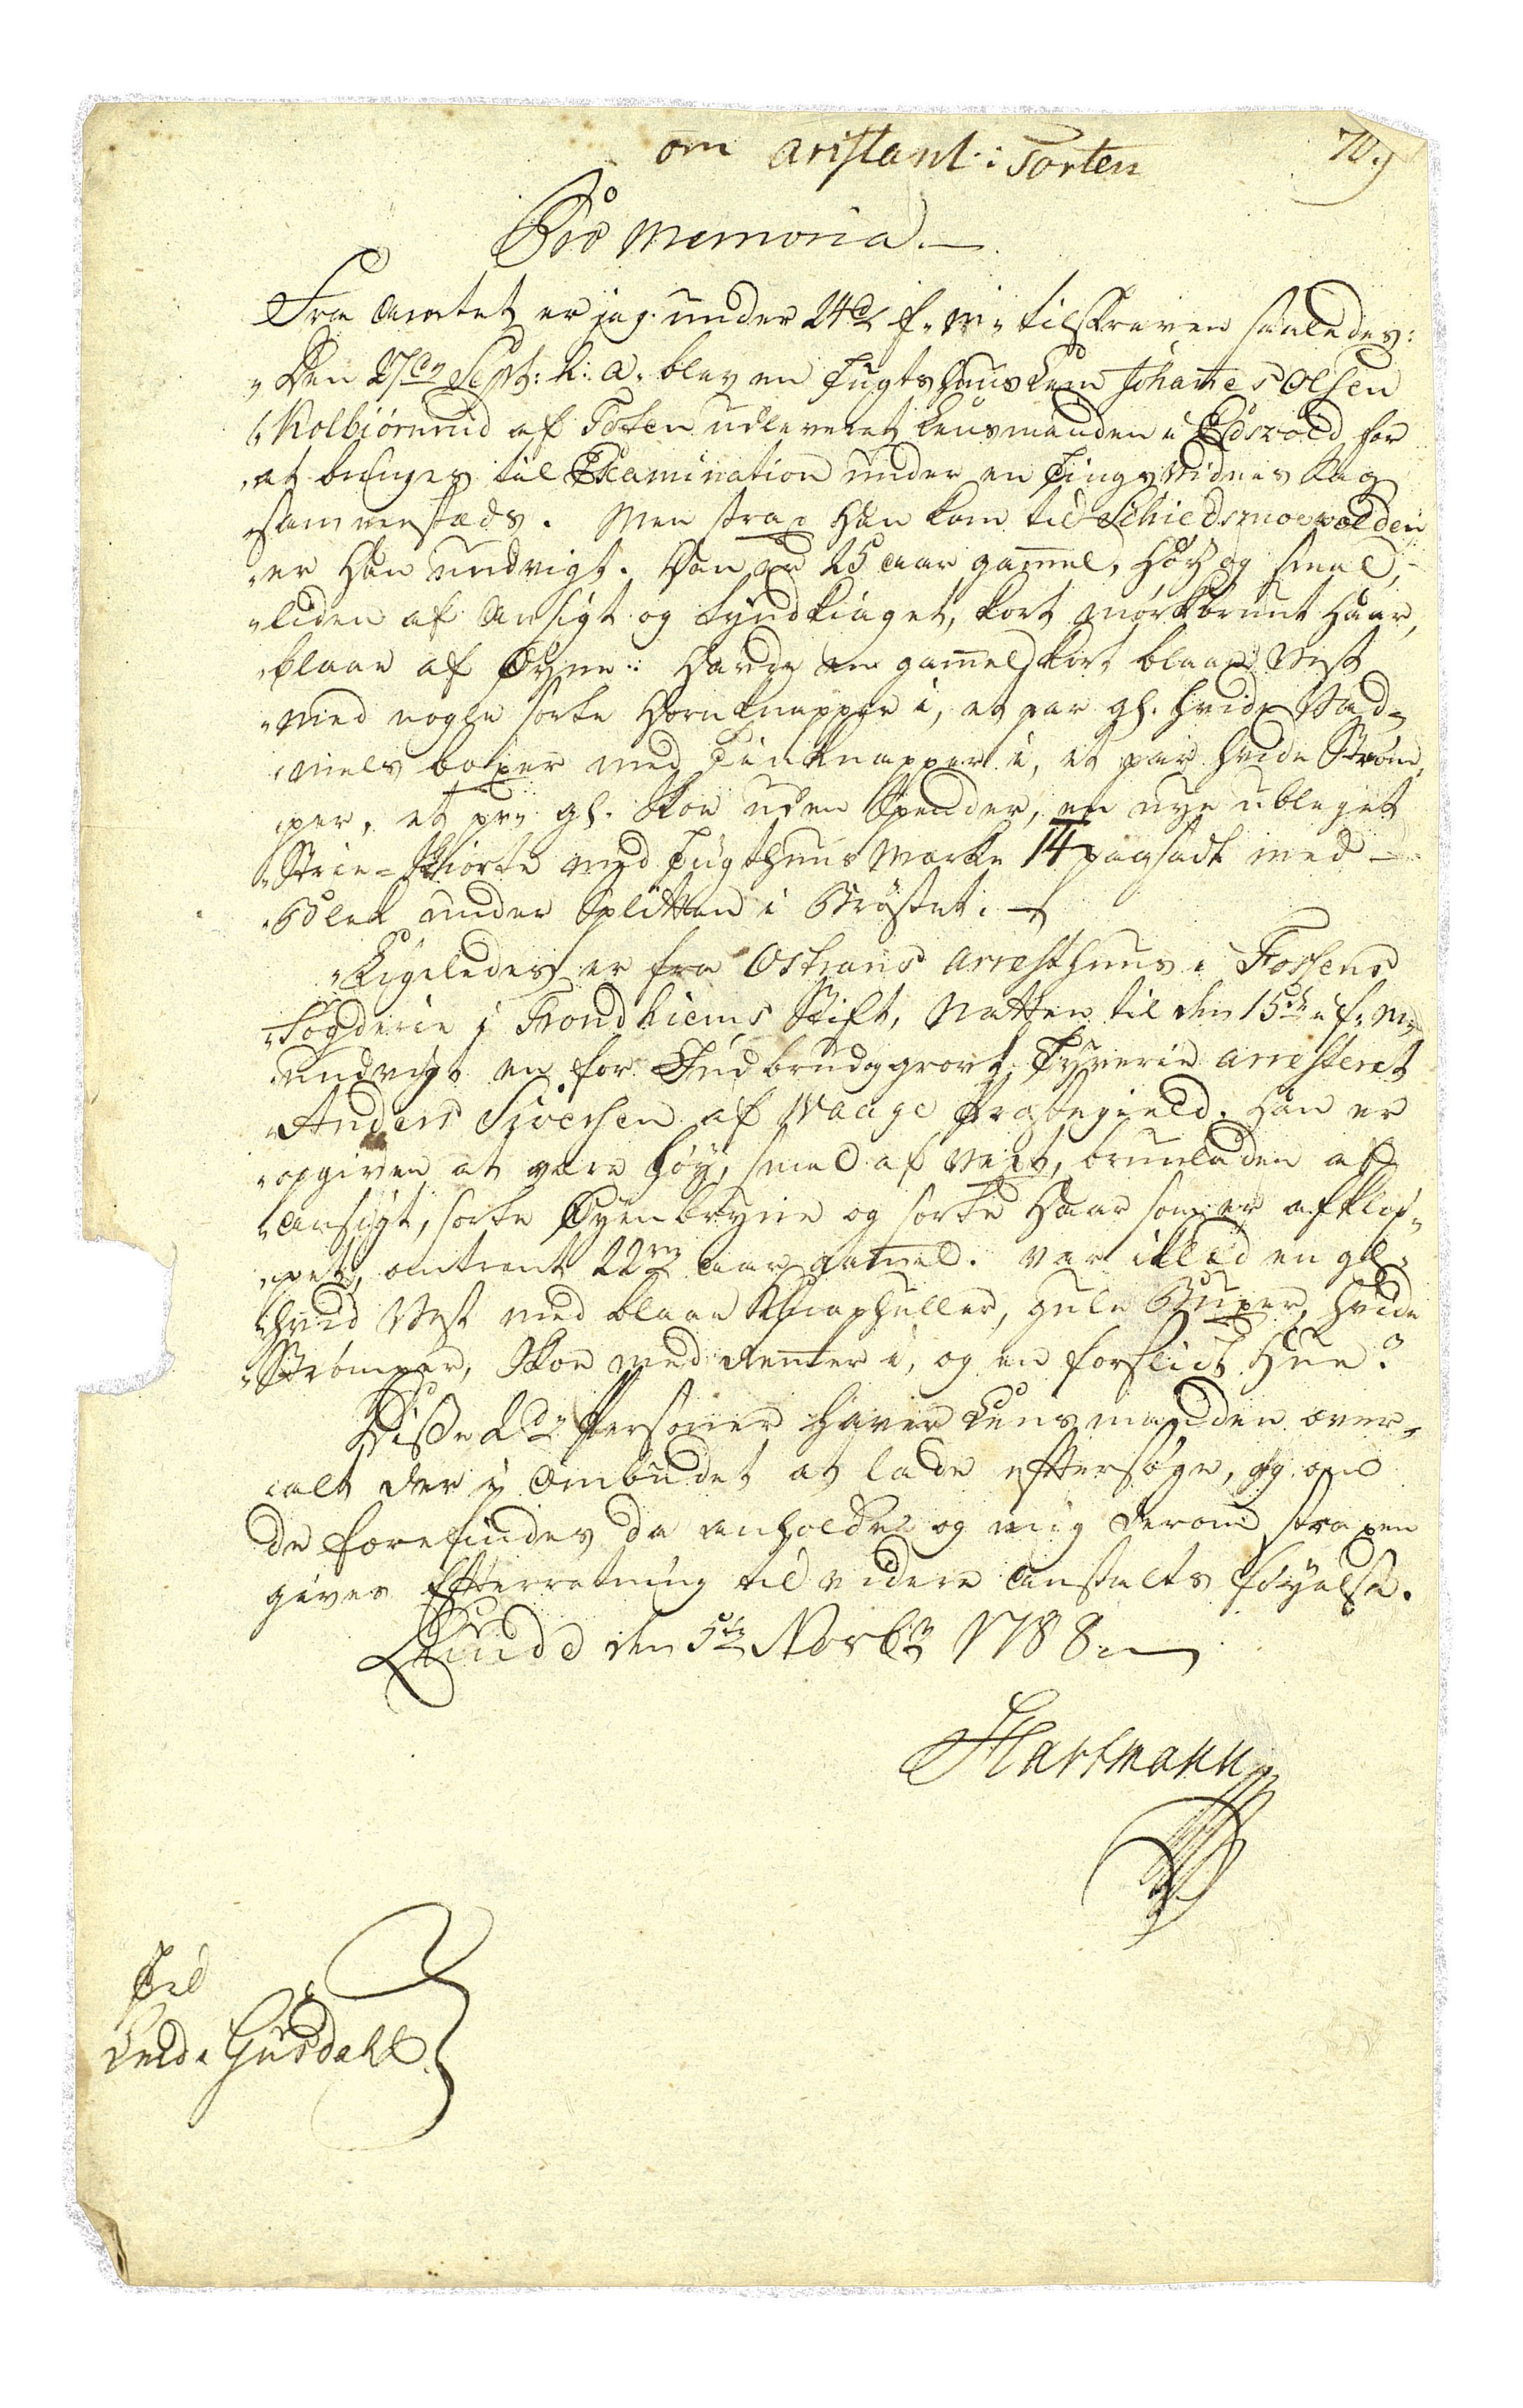 om aristant: i Torten
70.
Pro memoria.
Fra Amtet er jeg under 24de f. M. tilskreven saaledes:
"Den 27de Sept: h: a. blev en Tugthuus Lem Johannes Olsen
"Kolbiørnrud af Toten udleveret Lensmanden i Eidsvold for
"at bringes til Examination under en Tings Vidnes Sag
"sammestæds. Men strax Han kom til Schiedsmoevolden
"er Han undvigt. Han er 25 aar gamel, Høy og smal,
"liden af Ansigt og tyndkiaget, kort mørkbrunt Haar,
"blaae af Øyne: Havde en gamel kort blaae Vest
"med nogle sorte Hornknapper i, et par gl. hvide Vad=
"mels boxer med Tinknapper i, et par hvide Strøm
"per, et par gl. Skoe uden Spender, en nye ubleget
"Strie=Skiorte med Tugthuus Mærke 14 paasadt med
"Blek under Splitten i Brøstet.
"Ligeledes er fra Ostrans Arresthuus i Fossens
"Fogderie i Trondhiems Stift, Natten til den 15de f. M.
"undvigt en for Indbrud og grovt Tyverie arresteret
"Anders Siversen af Waage Præstegield. Han er
"opgiven at være høy, smal af Vext, bruunladen af
"Ansigt, sorte Øyenbryne og sorte Haar som er afklip=
"pet, omtrent 22 aar gamel. var iklæd en gl.
"hvid Vest med blaae Knaphuller, gule Buxer, hvide
"Strømper, Skoe med Remer i, og en forslidt Hue.
Disse 2de Personer haver Lensmanden over=
alt der i Ombudet at lade efftersøge, og om
de forefindes da anholdes og mig derom straxen
gives Effterretning til videre Anstalts føyelse.
Lunde den 5te Novbr 1788.
Hartmann
Til
Lmd. Guسdahl